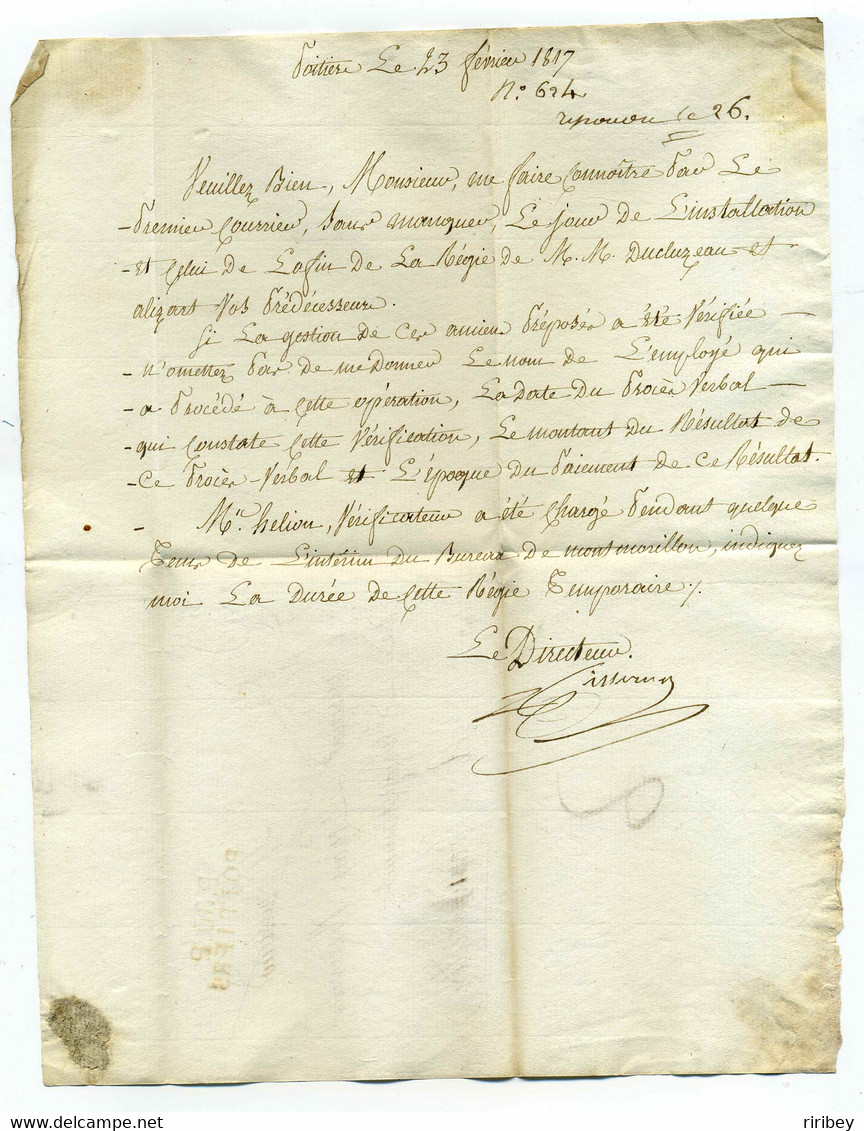 Poitiers Le 23 février 1817
N.° 624
repondu le 26.
Veuillez Bien, Monsieur, me faire Connoître Par Le
Premier Courrier, Sans manquer, Le jour de L'installation
et Celui de La fin de La Régie de M. M. Ducluzeau et
alizart Vos Prédécesseurs.
Si La gestion de Ces anciens Préposés a été Vérifiée
n'omettez Pas de me Donner Le nom de L'employé qui
a Procédé à Cette opération, La Date Du Procès Verbal
qui Constate Cette Vérification, Le montant Du Résultat de
Ce Procès-Verbal et L'époque Du Paiement de Ce Résultat.
M.r helion, Vérificateur a été Chargé Pendant quelque
Tems de L'intérim Du Bureau De montmorillon, indiquez
moi La Durée de Cette Régie Temporaire ./.
Le Directeur.
POITIERS
riribey